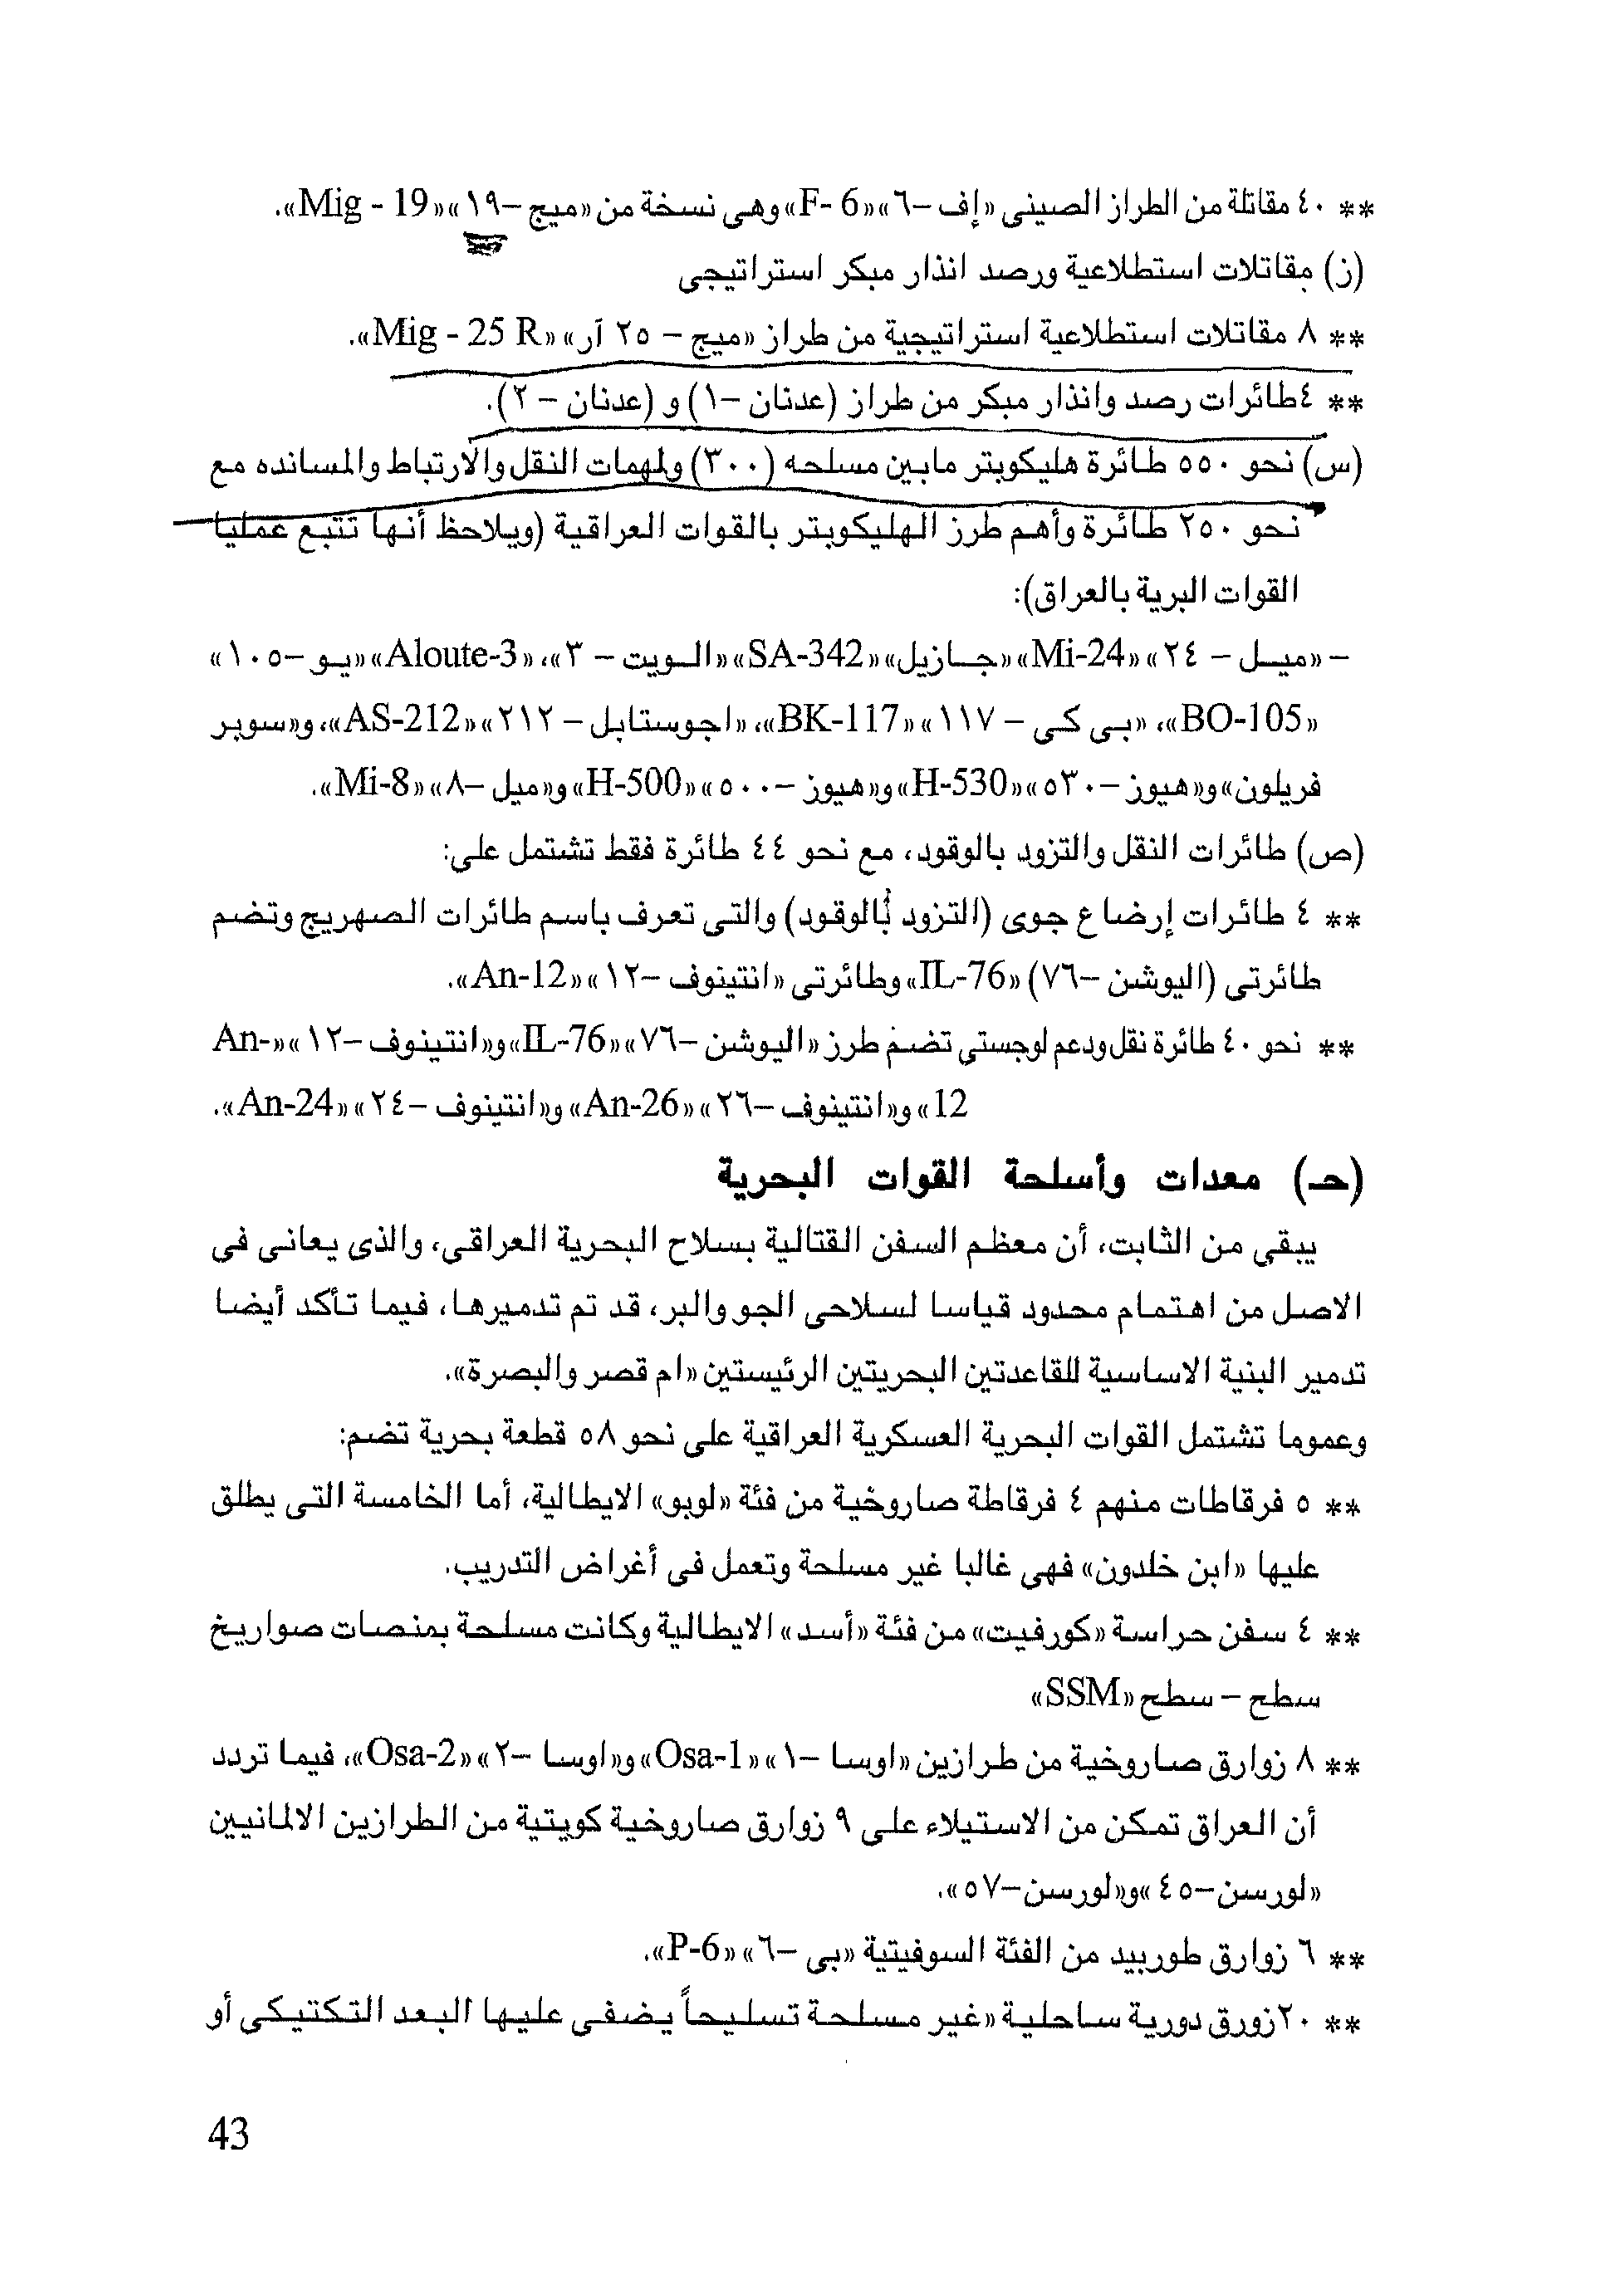 ** ٤٠ مقاتلة من الطراز الصينى «إف –٦» «F- 6» وهى نسخة من «ميج –١٩» «Mig - 19».
(ز) مقاتلات استطلاعية ورصد انذار مبكر استراتيجى
** ٨ مقاتلات استطلاعية استراتيجية من طراز «ميج – ٢٥ آر» «Mig - 25 R».
** ٤طائرات رصد وانذار مبكر من طراز (عدنان –١) و (عدنان – ٢).
(س) نحو ٥٥٠ طائرة هليكوبتر مابين مسلحه (٣٠٠) ولمهمات النقل والارتباط والمسانده مع
نحو ٢٥٠ طائرة وأهم طرز الهليكوبتر بالقوات العراقية (ويلاحظ أنها تتبع عمليا
القوات البرية بالعراق):
– «ميل – ٢٤» «Mi-24» «جازيل» «SA-342» «الويت – ٣»، «Aloute-3» «يو –١٠٥»
«BO-105»، «بى كى – ١١٧» «BK-117»، «اجوستابل – ٢١٢» «AS-212»، و«سوبر
فريلون» و«هيوز –٥٣٠» «H-530» و«هيوز –٥٠٠» «H-500» و«ميل –٨» «Mi-8».
(ص) طائرات النقل والتزود بالوقود، مع نحو ٤٤ طائرة فقط تشتمل على:
** ٤ طائرات إرضاع جوى (التزود بالوقود) والتى تعرف باسم طائرات الصهريج وتضم
طائرتى (اليوشن –٧٦) «IL-76» وطائرتى «انتينوف –١٢» «An-12».
** نحو ٤٠ طائرة نقل ودعم لوجستى تضم طرز «اليوشن –٧٦» «IL-76» و«انتينوف –١٢» «An-
12» و«انتينوف –٢٦» «An-26» و«انتينوف –٢٤» «An-24».
(حـ) معدات وأسلحة القوات البحرية
يبقى من الثابت، أن معظم السفن القتالية بسلاح البحرية العراقى، والذى يعانى فى
الاصل من اهتمام محدود قياسا لسلاحى الجو والبر، قد تم تدميرها، فيما تأكد أيضا
تدمير البنية الاساسية للقاعدتين البحريتين الرئيستين «ام قصر والبصرة».
وعموما تشتمل القوات البحرية العسكرية العراقية على نحو ٥٨ قطعة بحرية تضم:
** ٥ فرقاطات منهم ٤ فرقاطة صاروخية من فئة «لوبو» الايطالية، أما الخامسة التى يطلق
عليها «ابن خلدون» فهى غالبا غير مسلحة وتعمل فى أغراض التدريب.
** ٤ سفن حراسة «كورفيت» من فئة «أسد» الايطالية وكانت مسلحة بمنصات صواريخ
سطح – سطح «SSM»
** ٨ زوارق صاروخية من طرازين «اوسا –١» «Osa-1» و«اوسا –٢» «Osa-2»، فيما تردد
أن العراق تمكن من الاستيلاء على ٩ زوارق صاروخية كويتية من الطرازين الالمانيين
«لورسن–٤٥» و«لورسن–٥٧».
** ٦ زوارق طوربيد من الفئة السوفيتية «بى –٦» «P-6».
** ٢٠زورق دورية ساحلية «غير مسلحة تسليحاً يضفى عليها البعد التكتيكى أو
43